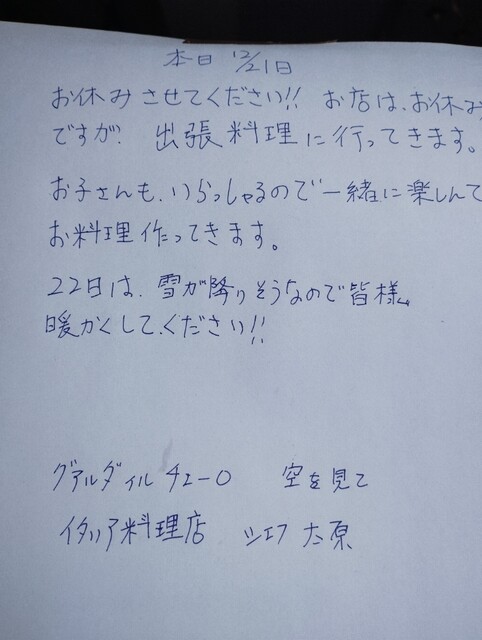 本日 12/21日
お休みさせてください!! お店は、お休み
ですが、出張料理に行ってきます。
お子さんも、いらっしゃるので一緒に楽しんで
お料理作ってきます。
22日は、雪が降りそうなので皆様、
暖かくして、ください!!
グァルダイルチェーロ 空を見て
イタリア料理店 シェフ 大原